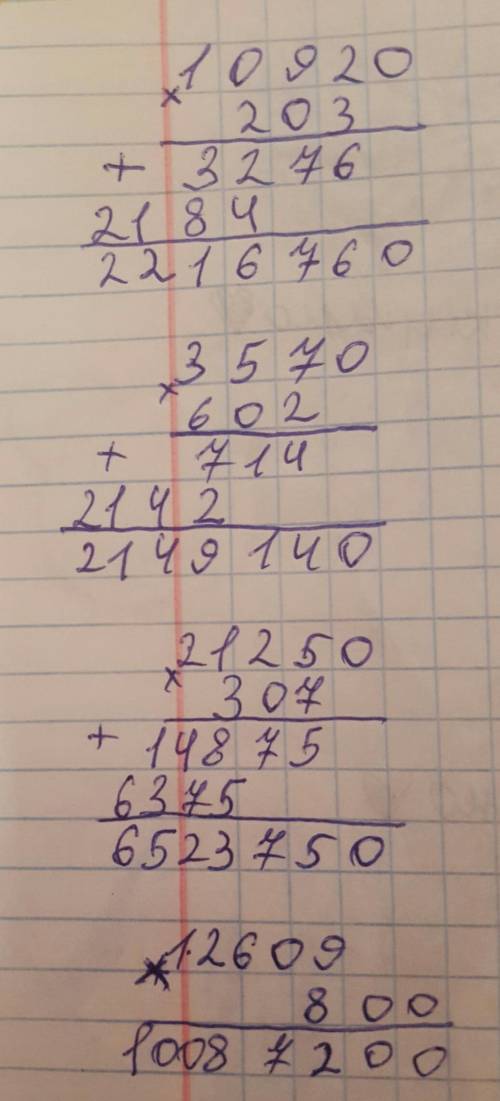 × 10920
203
+ 3276
2184
2216760
× 3570
602
+ 714
2142
2149140
× 21250
307
+ 14875
6375
6523750
× 12609
800
10087200